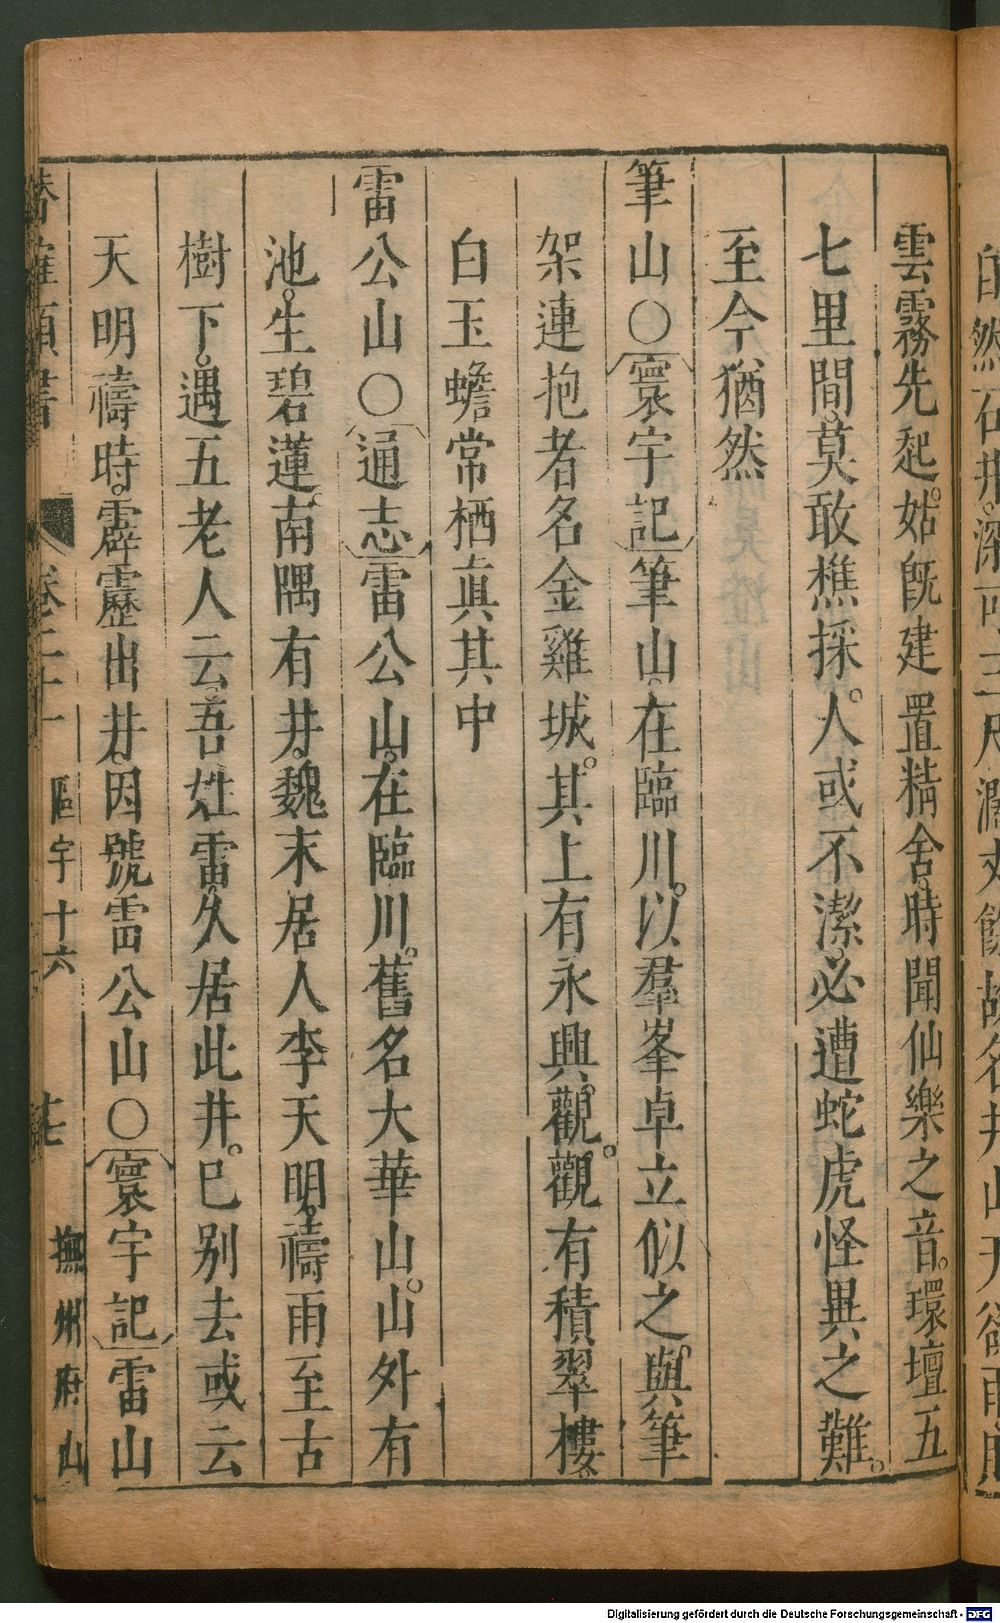 雲霧先起。姑既建置精舍。時聞仙樂之音。環壇五
七里間。莫敢樵採。人或不潔。必遭蛇虎怪異之難。
至今猶然
筆山○寰宇記筆山。在臨川。以羣峯卓立似之。與筆
架連抱者名金雞城。其上有永興觀。觀有積翠樓。
白玉蟾常栖眞其中
雷公山○通志雷公山。在臨川。舊名大華山。山外有
池。生碧蓮。南隅有井。魏末居人李天明。禱雨至古
樹下。遇五老人云。吾姓雷。久居此井。巳别去或云
天明禱時。霹靂出井。因號雷公山○寰宇記雷山
卷二十一
區宇十六
撫州府山
Digitalisierung gefördert durch die Deutsche Forschungsgemeinschaft - DFG